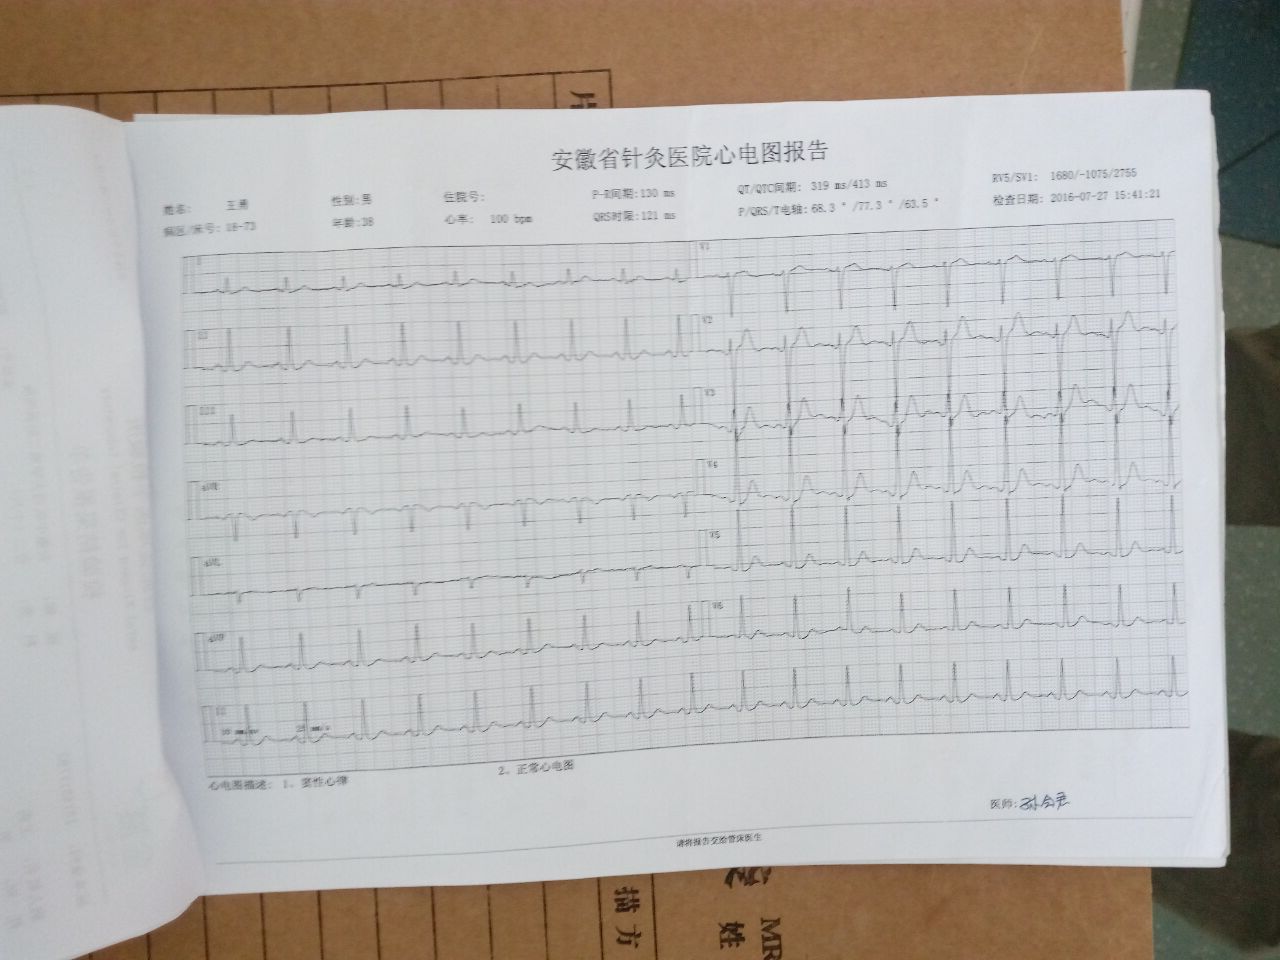 安徽省针灸医院心电图报告
姓名: 性别:男 住院号: P-R间期:130 ms QT/QTC间期: 319 ms/413 ms RV5/SV1: 1680/-1075/2755
病区/床号: 18-73 年龄:38 心率: 100 bpm QRS时限:121 ms P/QRS/T电轴:68.3 °/77.3 °/63.5 ° 检查日期: 2016-07-27 15:41:21
I V1
II V2
III V3
aVR
aVL V5
aVF V6
II
10 mm/mv 25 mm/s
心电图描述: 1、窦性心律 2、正常心电图
医师:
请将报告交给管床医生
描方
姓
MR